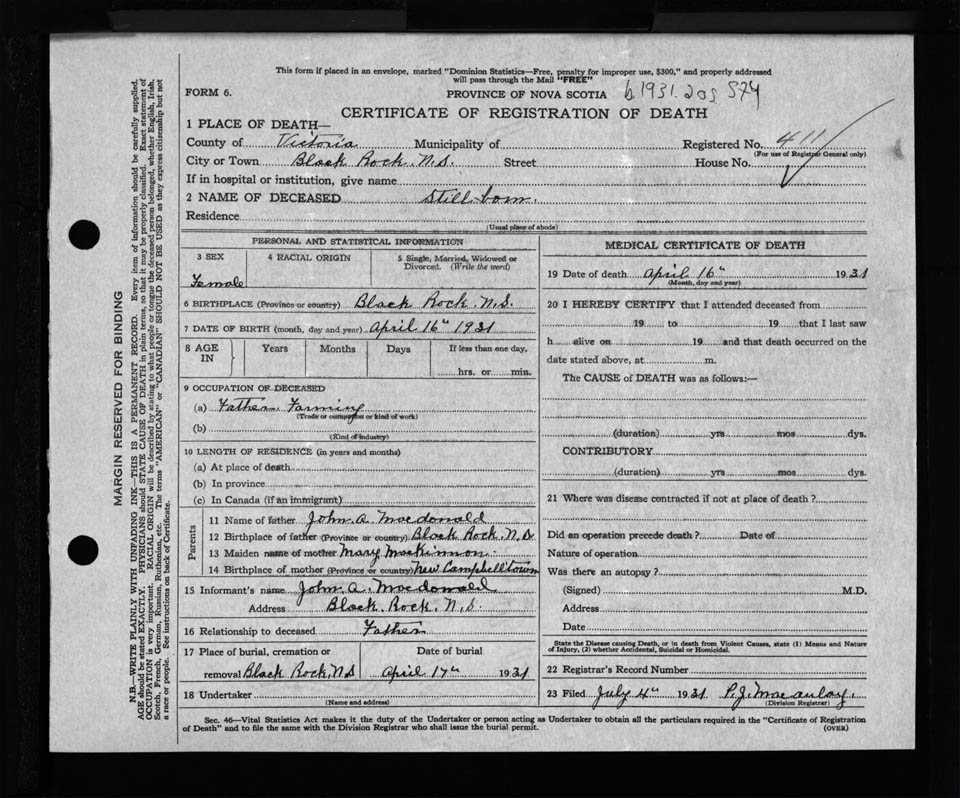 This form if placed in an envelope, marked "Dominion Statistics—Free, penalty for improper use, $300," and properly addressed
will pass through the Mail "FREE"
FORM 6.
PROVINCE OF NOVA SCOTIA b. 1931. 205 574
CERTIFICATE OF REGISTRATION OF DEATH
1 PLACE OF DEATH—
County of Victoria Municipality of Registered No. 411
(For use of Registrar General only)
City or Town Black Rock. N.S. Street House No.
If in hospital or institution, give name
2 NAME OF DECEASED Still born.
Residence
(Usual place of abode)
PERSONAL AND STATISTICAL INFORMATION
3 SEX 4 RACIAL ORIGIN 5 Single, Married, Widowed or
Divorced. (Write the word)
Female
6 BIRTHPLACE (Province or country) Black Rock. N.S.
7 DATE OF BIRTH (month, day and year) April 16th 1931
8 AGE IN Years Months Days If less than one day.
hrs. or min.
9 OCCUPATION OF DECEASED
(a) Father Farming
(Trade or occupation or kind of work)
(b)
(Kind of industry)
10 LENGTH OF RESIDENCE (in years and months)
(a) At place of death
(b) In province
(c) In Canada (if an immigrant)
Parents
11 Name of father John A. Macdonald
12 Birthplace of father (Province or country) Black Rock. N.S
13 Maiden name of mother Mary MacKinnon.
14 Birthplace of mother (Province or country) New Campbelltown
15 Informant's name John A. Macdonald
Address Black Rock. N.S.
16 Relationship to deceased Father
17 Place of burial, cremation or Date of burial
removal Black Rock. NS April 17th 1931
18 Undertaker
(Name and address)
MEDICAL CERTIFICATE OF DEATH
19 Date of death April 16th 1931
(Month, day and year)
20 I HEREBY CERTIFY that I attended deceased from
19 to 19 that I last saw
h alive on 19 and that death occurred on the
date stated above, at m.
The CAUSE of DEATH was as follows:—
(duration) yrs mos dys.
CONTRIBUTORY
(duration) yrs mos dys.
21 Where was disease contracted if not at place of death?
Did an operation precede death? Date of
Nature of operation
Was there an autopsy?
(Signed) M.D.
Address
Date
State the Disease causing Death, or in death from Violent Causes, state (1) Means and Nature
of Injury, (2) whether Accidental, Suicidal or Homicidal.
22 Registrar's Record Number
23 Filed July 4th 1931 P.J. Macaulay.
(Division Registrar)
Sec. 46—Vital Statistics Act makes it the duty of the Undertaker or person acting as Undertaker to obtain all the particulars required in the "Certificate of Registration
of Death" and to file the same with the Division Registrar who shall issue the burial permit. (OVER)
MARGIN RESERVED FOR BINDING
N.B.—WRITE PLAINLY WITH UNFADING INK—THIS IS A PERMANENT RECORD. Every item of information should be carefully supplied.
AGE should be stated EXACTLY. PHYSICIANS should STATE CAUSE OF DEATH in plain terms, so that it may be properly classified. Exact statement of
OCCUPATION is very important. RACIAL ORIGIN will be described by stating to what people or tongue the deceased person belonged, whether English, Irish,
Scotch, French, German, Russian, Ruthenian, etc. The terms "AMERICAN" or "CANADIAN" SHOULD NOT BE USED as they express citizenship but not
a race or people. See instructions on back of Certificate.